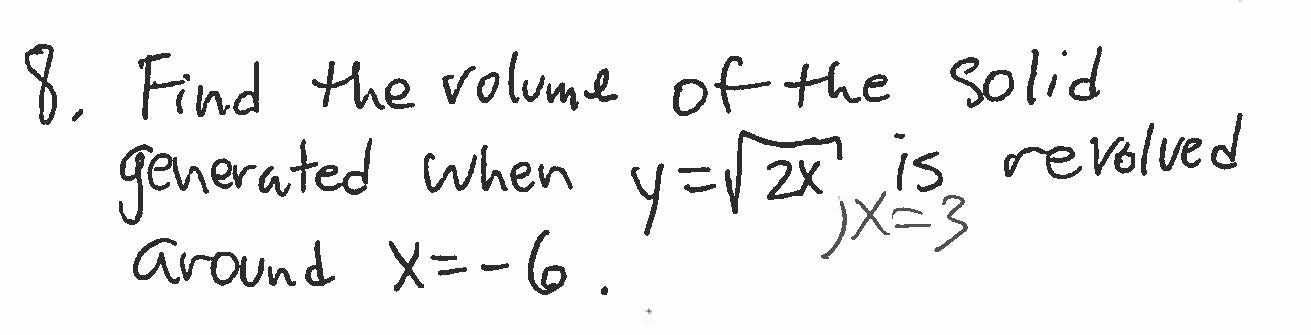 8. Find the volume of the solid
generated when y=√2x, x=3 is revolved
around x=-6.